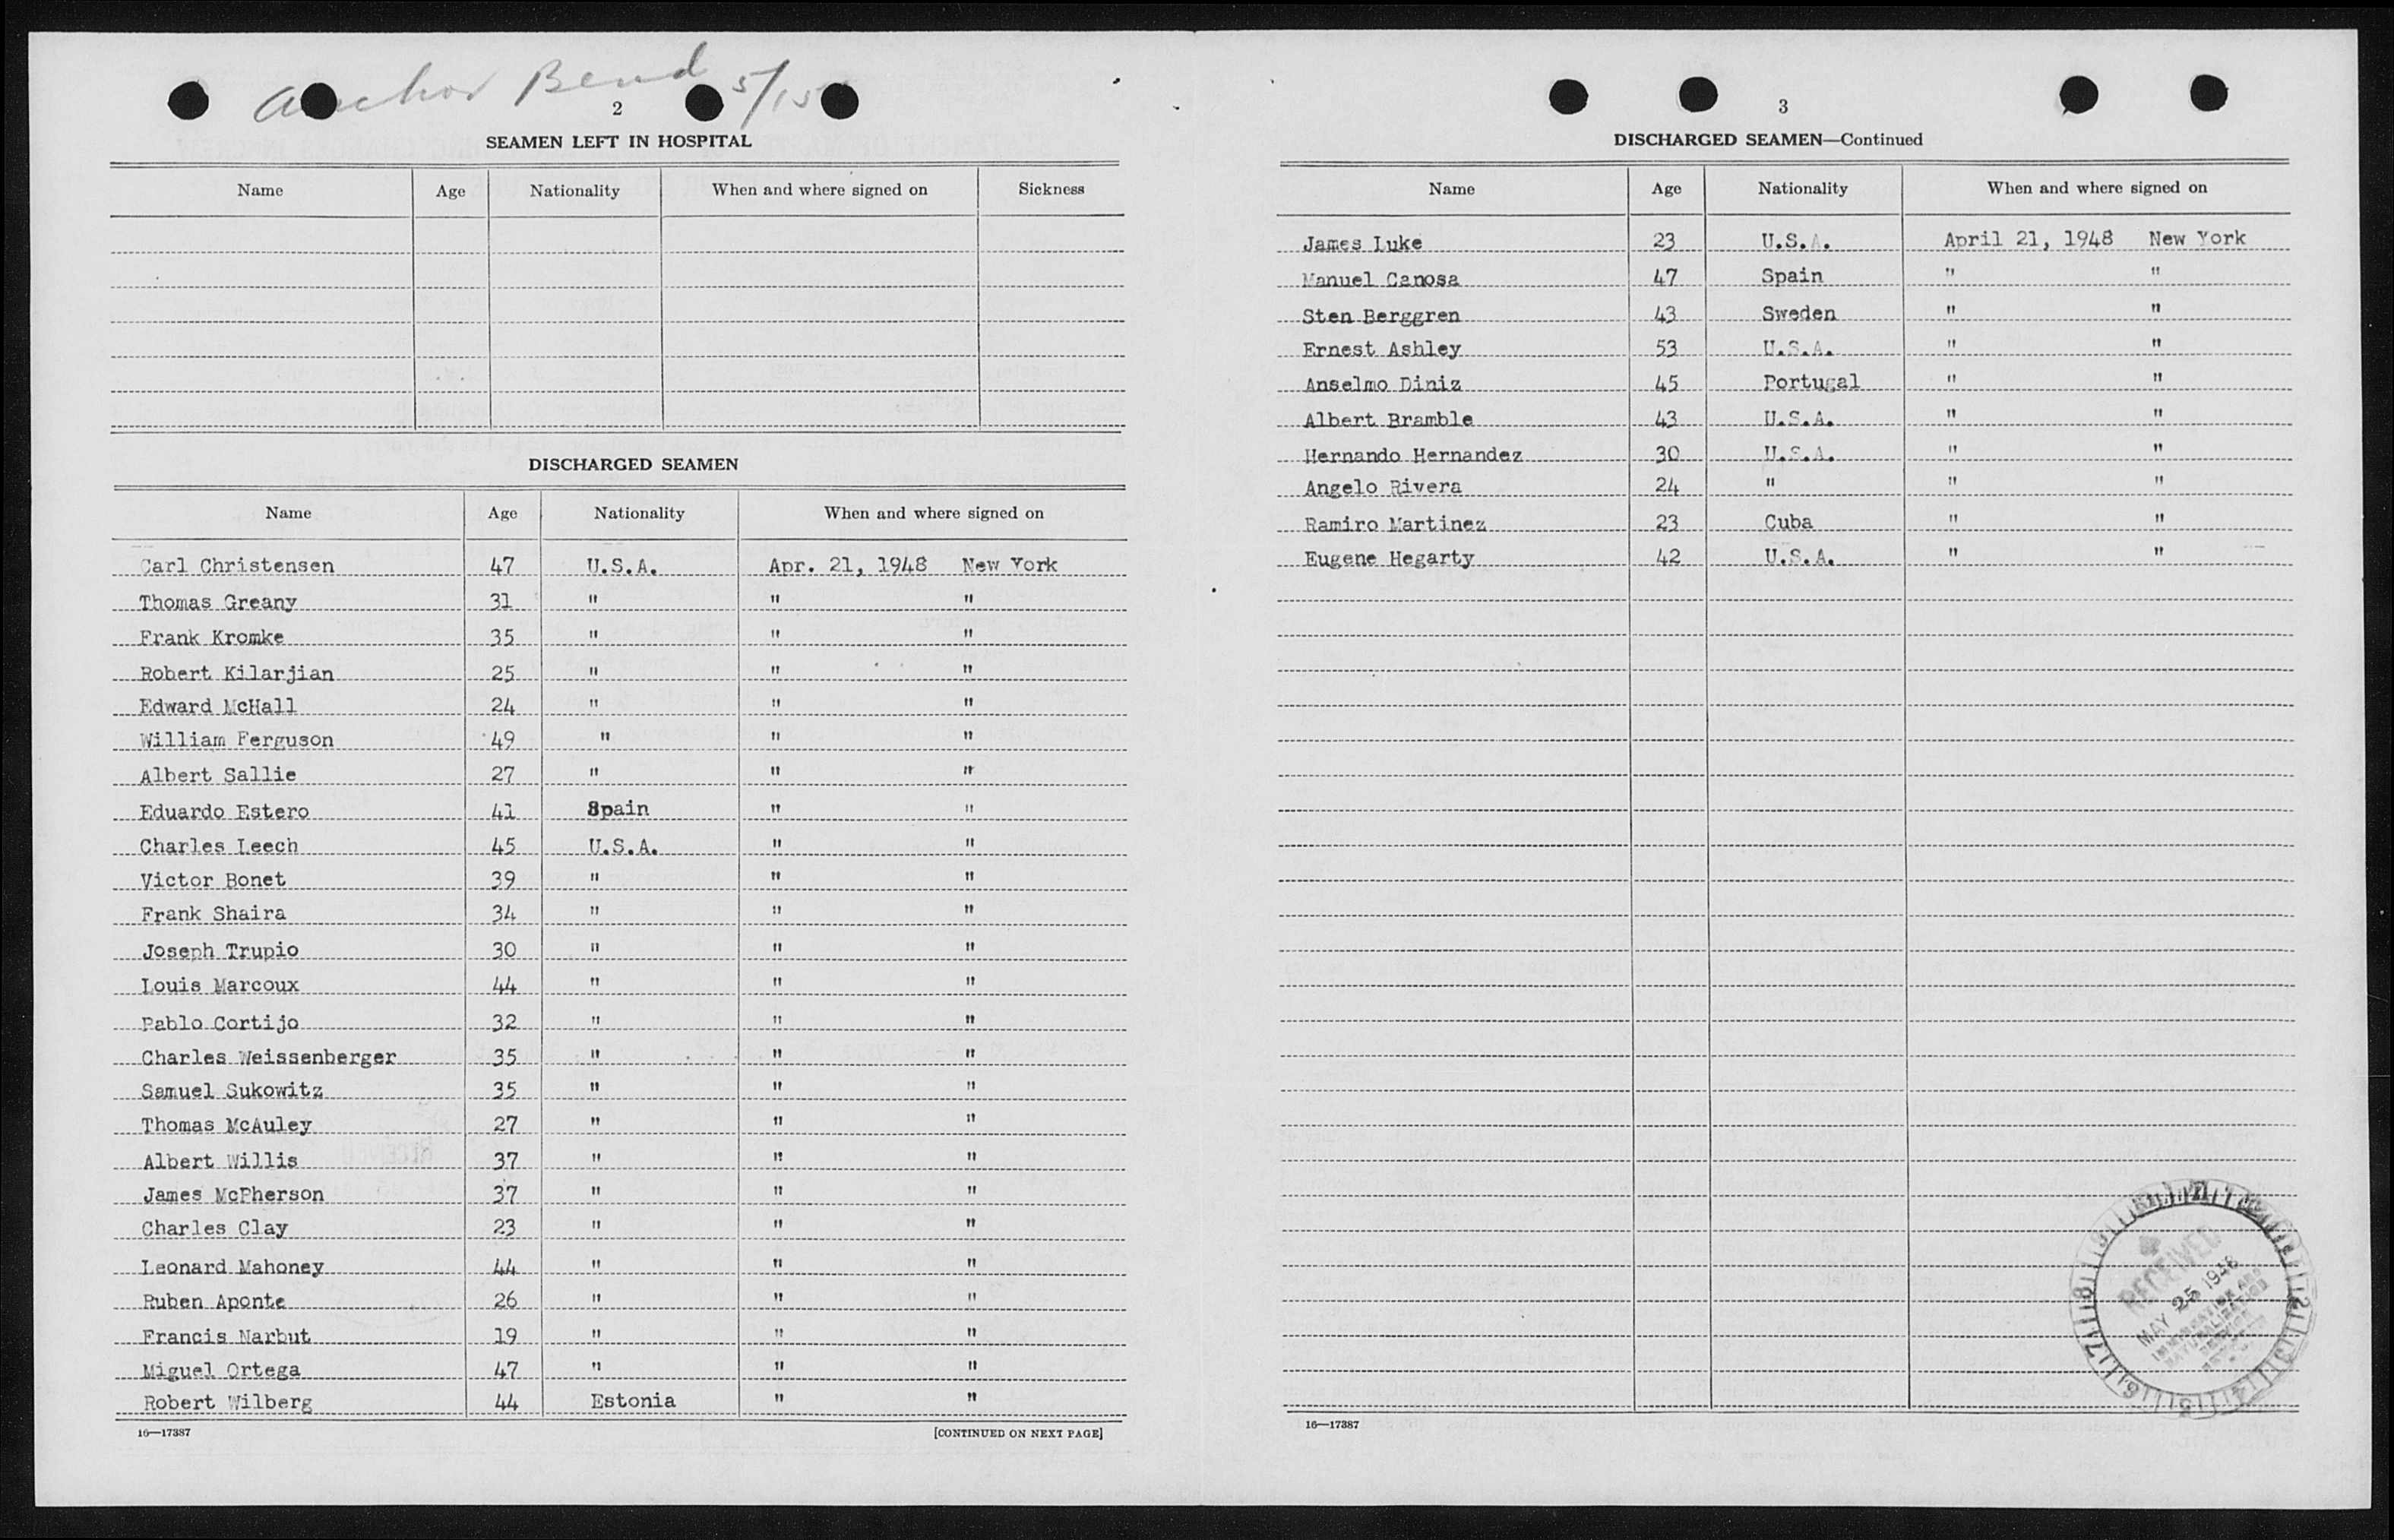 Anchor Bend 5/15
2
SEAMEN LEFT IN HOSPITAL
Name Age Nationality When and where signed on Sickness
DISCHARGED SEAMEN
Name Age Nationality When and where signed on
Carl Christensen 47 U.S.A. Apr. 21, 1948 New York
Thomas Greany 31 " " "
Frank Kromke 35 " " "
Robert Kilarjian 25 " " "
Edward McHall 24 " " "
William Ferguson 49 " " "
Albert Sallie 27 " " "
Eduardo Estero 41 Spain " "
Charles Leech 45 U.S.A. " "
Victor Bonet 39 " " "
Frank Shaira 34 " " "
Joseph Trupio 30 " " "
Louis Marcoux 44 " " "
Pablo Cortijo 32 " " "
Charles Weissenberger 35 " " "
Samuel Sukowitz 35 " " "
Thomas McAuley 27 " " "
Albert Willis 37 " " "
James McPherson 37 " " "
Charles Clay 23 " " "
Leonard Mahoney 44 " " "
Ruben Aponte 26 " " "
Francis Narbut 19 " " "
Miguel Ortega 47 " " "
Robert Wilberg 44 Estonia " "
16—17387 [CONTINUED ON NEXT PAGE]
3
DISCHARGED SEAMEN—Continued
Name Age Nationality When and where signed on
James Luke 23 U.S.A. April 21, 1948 New York
Manuel Canosa 47 Spain " "
Sten Berggren 43 Sweden " "
Ernest Ashley 53 U.S.A. " "
Anselmo Diniz 45 Portugal " "
Albert Bramble 43 U.S.A. " "
Hernando Hernandez 30 U.S.A. " "
Angelo Rivera 24 " " "
Ramiro Martinez 23 Cuba " "
Eugene Hegarty 42 U.S.A. " "
RECEIVED
MAY 25 1948
IMMIGRATION AND
NATURALIZATION
SERVICE
16—17387